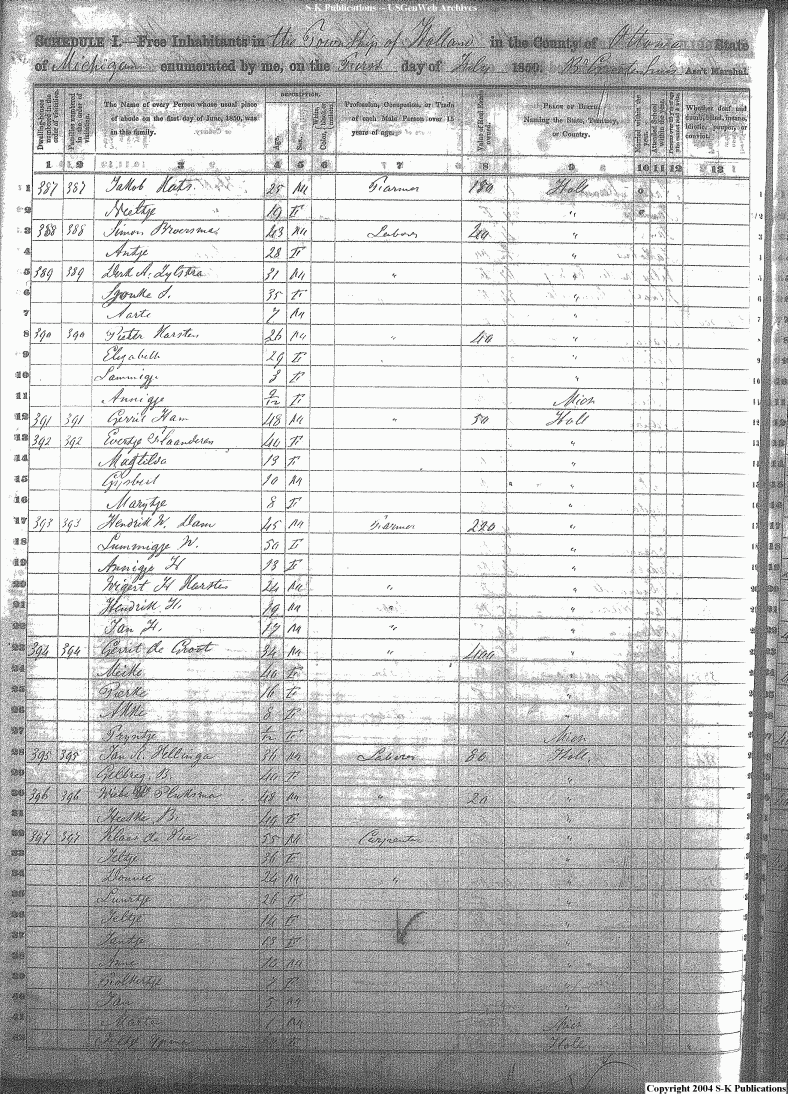 S-K Publications – USGenWeb Archives
SCHEDULE I.—Free Inhabitants in the Township of Holland in the County of Ottawa State
of Michigan enumerated by me, on the First day of July 1850. Ass't Marshal.
Dwelling-houses numbered in the order of visitation.
Families numbered in the order of visitation.
The Name of every Person whose usual place of abode on the first day of June, 1850, was in this family.
DESCRIPTION.
Age.
Sex.
Color,
Profession, Occupation, or Trade of each Male Person over 15 years of age.
Value of Real Estate owned.
PLACE OF BIRTH. Naming the State, Territory, or Country.
Married within the year.
Attended School within the year.
Whether deaf and dumb, blind, insane, idiotic, pauper, or convict.
1 2 3 4 5 6 7 8 9 10 11 12 13
1 387 387 Jakob Kats 25 M Farmer 180 Holl
2 Neeltje 19 F "
3 388 388 Simon Broersma 43 M Labores 40 "
4 Antje 28 F "
5 389 389 Derk A. Zylstra 31 M " "
6 35 F "
7 Aarte 7 M "
8 390 390 Pieter Karsten 26 M " 40 "
9 Elizabeth 29 F "
10 Lammigje 3 F "
11 Annigje F Mich
12 391 391 Gerrit Ham 48 M " 50 Holl
13 392 392 Evertje Vlaanderen 40 F "
14 Magtilda 13 F "
15 Gijsbert 10 M "
16 Marijtje 8 F "
17 393 393 Hendrik W. Dam 45 M Farmer 220 "
18 Lummigje W. 50 F "
19 Annigje H 13 F "
20 Wigert H Karsten 24 M " "
21 Hendrik H. 19 M " "
22 Jan H. 17 M " "
23 394 394 Gerrit de Groot 34 M " 400 "
24 Meike 40 F "
25 16 F "
26 Akke 8 F "
27 Pryntje F Mich
28 395 395 Jan R. Hellinga 36 M Labores 80 Holl
29 B. 40 F "
30 396 396 48 M " 20 "
31 B. F "
32 397 397 Klaas de Vries 55 M Carpenter "
33 Jeltje 36 F "
34 Douwe 24 M " "
35 26 F "
36 Jeltje 14 F "
37 13 F "
38 10 M "
39 7 F "
40 Jan 5 M "
41 1 M Mich
42 Holl
Copyright 2004 S-K Publications